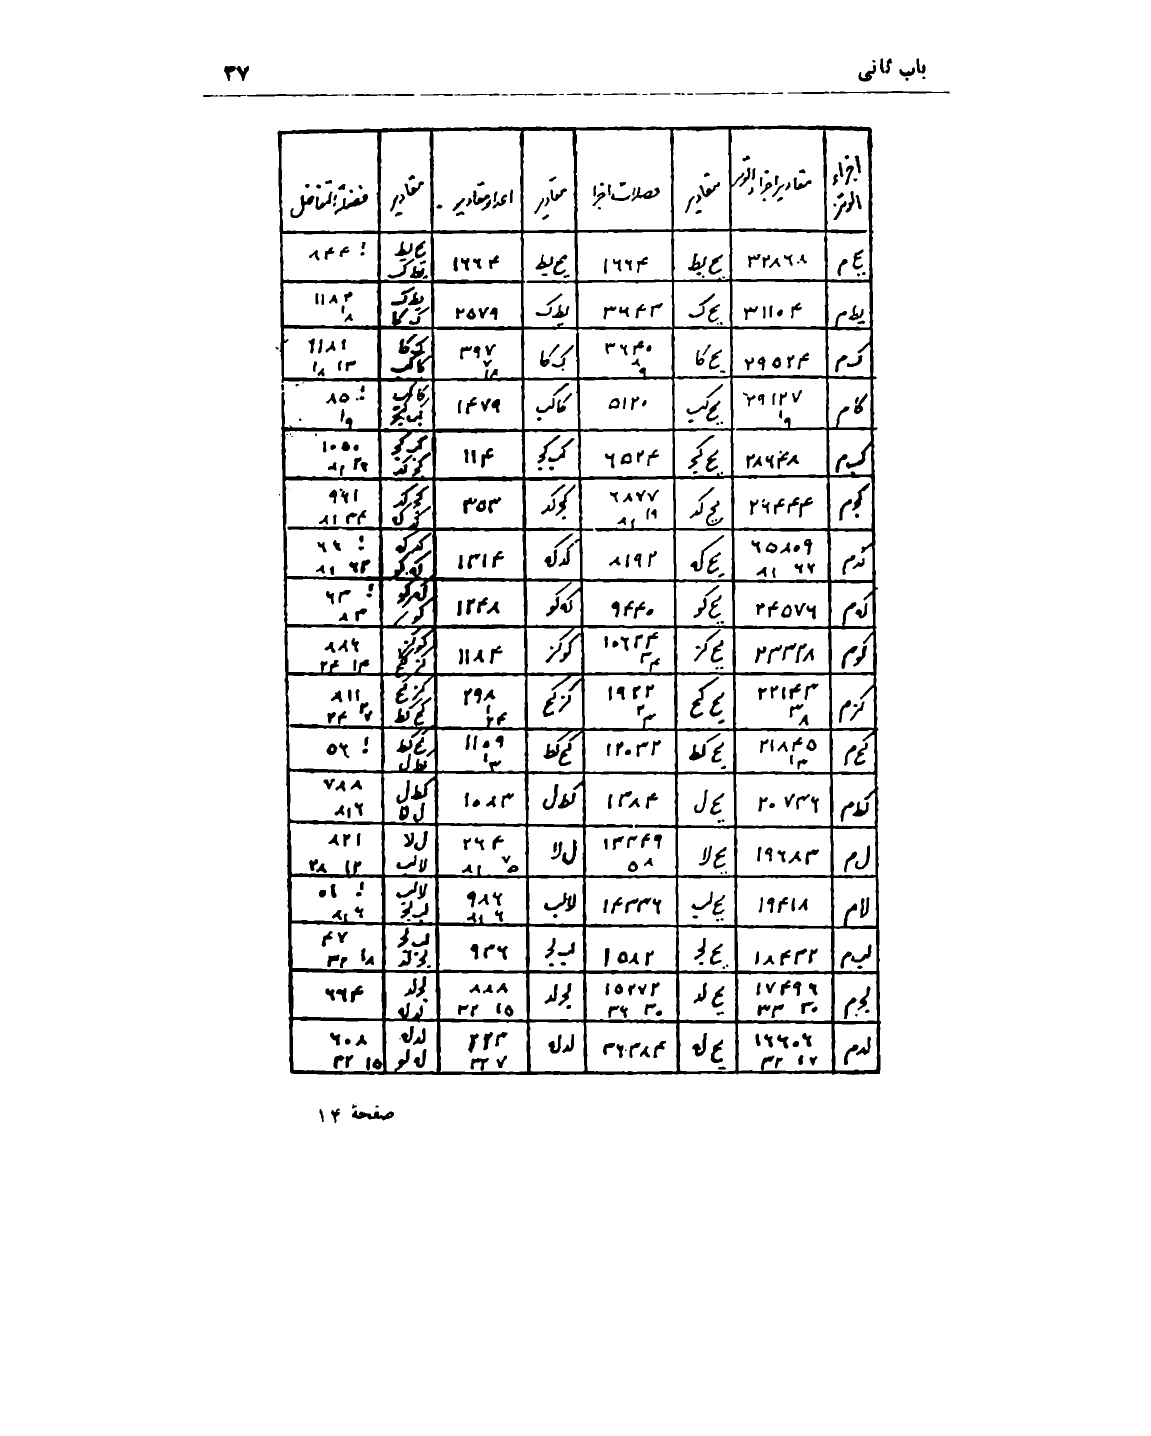 باب ثانی
۳۷
اجزاء الوتر	مقادیر اجزاء الوتر	مقادیر	فصلات اجزا	مقادیر	اعداد مقادیر	مقادیر	فضلة التفاضل
یح م	۳۲۸۶۸	یح یط	۱۶۶۴	یح یط	۱۶۶۴	یح یط یط ک	۸۴۴
یط م	۳۱۱۰۴	یح ک	۳۶۴۳	یط ک	۲۵۷۹	یط ک ک کا	۱۱۸۴ ۱ ۸
ک م	۲۹۵۲۴	یح کا	۳۶۴۰ ۸ ۹	ک کا	۳۹۷ ۷ ۱۴	ک کا کا کب	۶۱۸۱ ۱۳ ۱۸
کا م	۲۹۱۲۷ ۱ ۹	یح کب	۵۱۲۰	کا کب	۱۴۷۹	کا کب کب کج	۸۵ ۱۹
کب م	۲۸۶۴۸	یح کج	۶۵۲۴	کب کج	۱۱۴	کب کج کج کد	۱۰۵۰
کج م	۲۶۴۴۴	یح کد	۶۸۷۷ ۱۹ ۸۱	کج کد	۳۵۳	کج کد کد که	۹۶۱ ۳۴ ۸۱
کد م	۶۵۸۰۹ ۶۶ ۸۱	یح که	۸۱۹۲	کد که	۱۳۱۴	کد که که کو	۶۶ ۶۳ ۸۱
که م	۲۴۵۷۶	یح کو	۹۴۴۰	که کو	۱۲۴۸	که کو	۶۳ ۸۳
کو م	۲۳۳۲۸	یح کز	۱۰۶۲۴ ۳۴	کو کز	۱۱۸۴	کو کز کز کح	۸۸۶ ۱۴ ۲۴
کز م	۲۲۱۴۳ ۳ ۸	یح کح	۱۹۲۲ ۲ ۳	کز کح	۲۹۸ ۱ ۲۴	کز کح کح کط	۸۱۱
کح م	۲۱۸۴۵ ۱ ۳	یح کط	۱۲۰۳۲	کح کط	۱۱۰۹ ۱ ۳	کح کط کط ل	۵۶
کط م	۲۰۷۳۶	یح ل	۱۳۸۴	کط ل	۱۰۸۳	کط ل ل لا	۷۸۸ ۸۱۶
ل م	۱۹۶۸۳	یح لا	۱۳۴۴۹ ۵۸	ل لا	۲۶۴ ۷۵ ۸۱	ل لا لا لب	۸۲۱ ۱۲ ۲۸
لا م	۱۹۴۱۸	یح لب	۱۴۳۳۶	لا لب	۹۸۶ ۶ ۸۱	لا لب لب لج	۵۱ ۸۱۶
لب م	۱۸۴۳۲	یح لج	۱۵۸۲	لب لج	۹۳۶	لب لج لج لد	۴۷ ۱۸ ۳۲
لج م	۱۷۴۹۶ ۳۰ ۳۳	یح لد	۱۵۲۷۲ ۳۰ ۳۶	لج لد	۸۸۸ ۱۵ ۳۲	لج لد لد له	۶۶۴
لد م	۱۶۶۰۶ ۱۷ ۳۲	یح له	۳۶۳۸۴	لد له	۲۲۳ ۷ ۳۲	لد له له لو	۶۰۸ ۱۵ ۳۲
صفحهٔ ۱۴